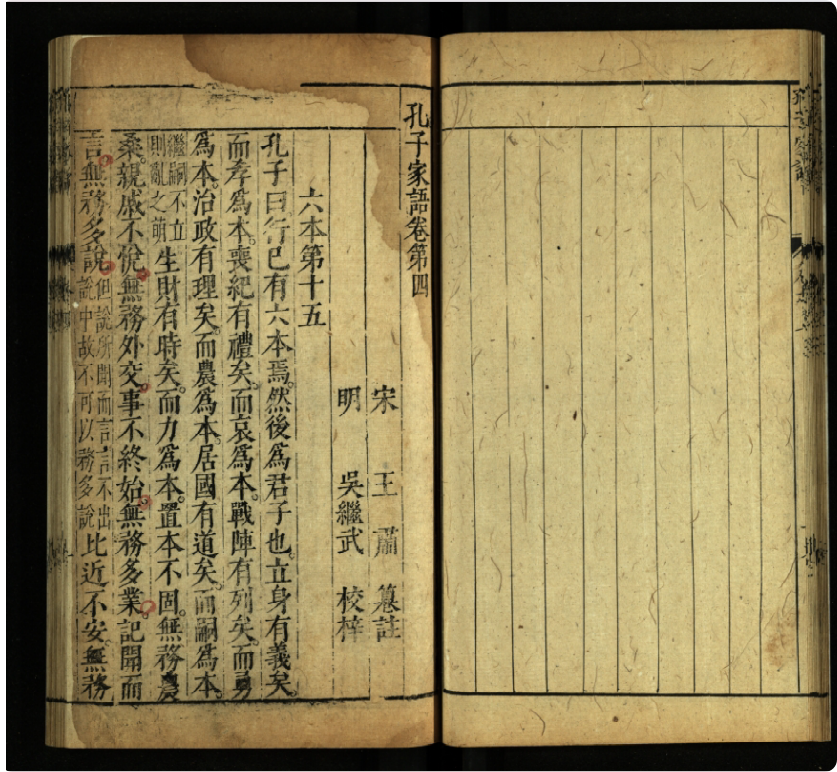 孔子家語卷第四
宋 王肅 纂註
明 吳繼武 校梓
六本第十五
孔子曰行己有六本焉。然後爲君子也。立身有義矣。
而孝爲本。喪紀有禮矣。而哀爲本。戰陣有列矣。而勇
爲本。治政有理矣。而農爲本。居國有道矣。而嗣爲本。
繼嗣不立
則亂之萌
生財有時矣。而力爲本。置本不固。無務農
桑。親戚不悅。無務外交。事不終始。無務多業。記聞而
言。無務多說。
但說所聞而言言不出
說中故不可以務多說
比近不安。無務